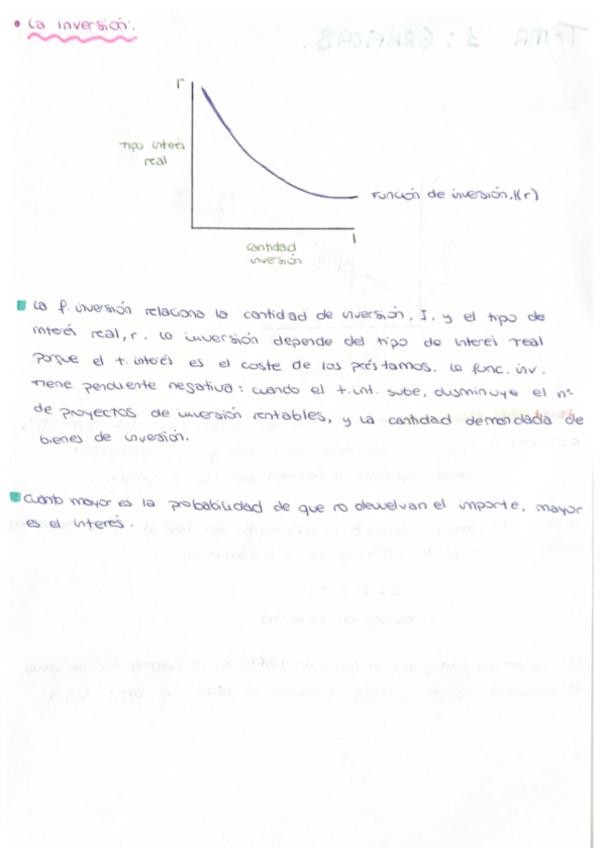 • La inversión.
r
tipo interés
real
Función de inversión, I(r)
I
cantidad
inversión
La f. inversión relaciona la cantidad de inversión, I, y el tipo de
interés real, r. La inversión depende del tipo de interés real
porque el t. interés es el coste de los préstamos. La func. inv.
tiene pendiente negativa: cuando el t. int. sube, disminuye el nº
de proyectos de inversión rentables, y la cantidad demandada de
bienes de inversión.
Cuanto mayor es la probabilidad de que no devuelvan el importe, mayor
es el interés.